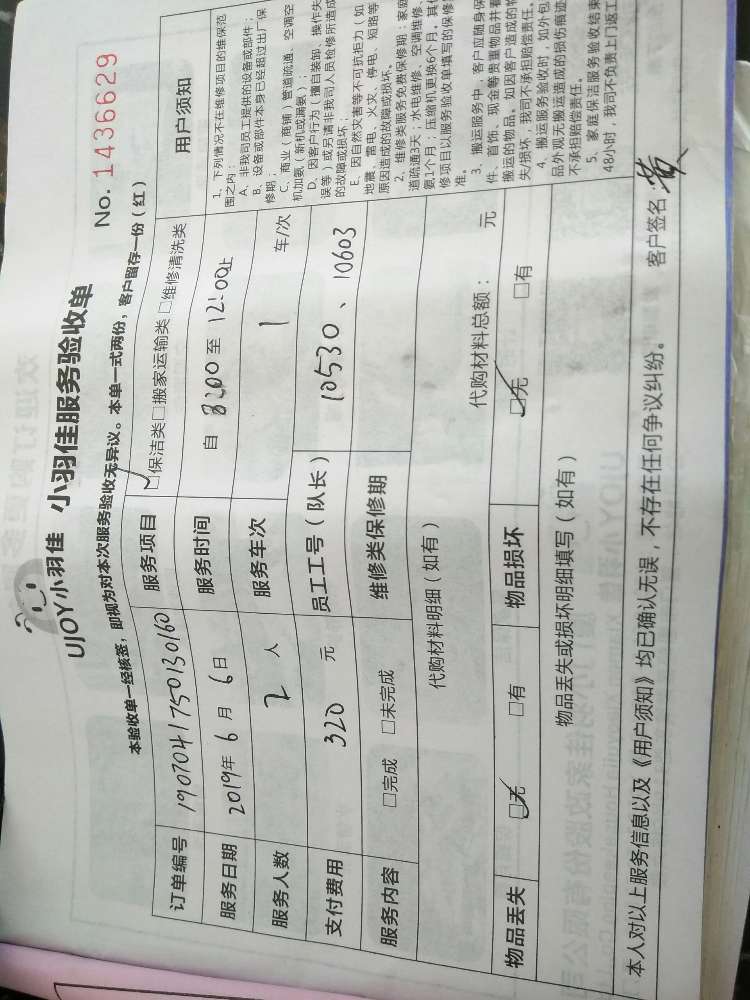 UJOY小羽佳 小羽佳服务验收单
No. 1436629
本验收单一经核签，即视为对本次服务验收无异议。本单一式两份，客户留存一份（红）
订单编号 1907041750130160 服务项目 □保洁类□搬家运输类 □维修清洗类
服务日期 2019年 6 月 6 日 服务时间 自 8:00 至 12:00止
服务人数 2 人 服务车次 1 车/次
支付费用 320 元 员工工号（队长） 10530、10603
服务内容 □完成 □未完成 维修类保修期
代购材料明细（如有） 代购材料总额： 元
物品丢失 □无 □有 物品损坏 □无 □有
物品丢失或损坏明细填写（如有）
用户须知
1、下列情况不在维修项目的维保范
围之内：
A、非我司员工提供的设备或部件；
B、设备或部件本身已经超过出厂保
修期；
C、商业（商铺）管道疏通、空调空
机加氨（新机或漏氨）；
D、因客户行为（擅自装卸、操作失
误等）或另请非我司人员检修所造成
的故障或损坏；
E、因自然灾害等不可抗拒力（如
地震、雷电、火灾、停电、短路等
原因造成的故障或损坏。
2、维修类服务免费保修期：家庭
道疏通3天；水电维修、空调维修、
氨1个月；压缩机更换6个月。其
修项目以服务验收单填写的保修
准。
3、搬运服务中，客户应随身保
件、首饰、现金等贵重物品并看
搬运的物品。如因客户造成的物
失/损坏，我司不承担赔偿责任。
4、搬运服务验收时，如外包
品外观无搬运造成的损伤痕迹
不承担赔偿责任。
5、家庭保洁服务验收结束
48小时，我司不负责上门返工
本人对以上服务信息以及《用户须知》均已确认无误，不存在任何争议纠纷。 客户签名 黄